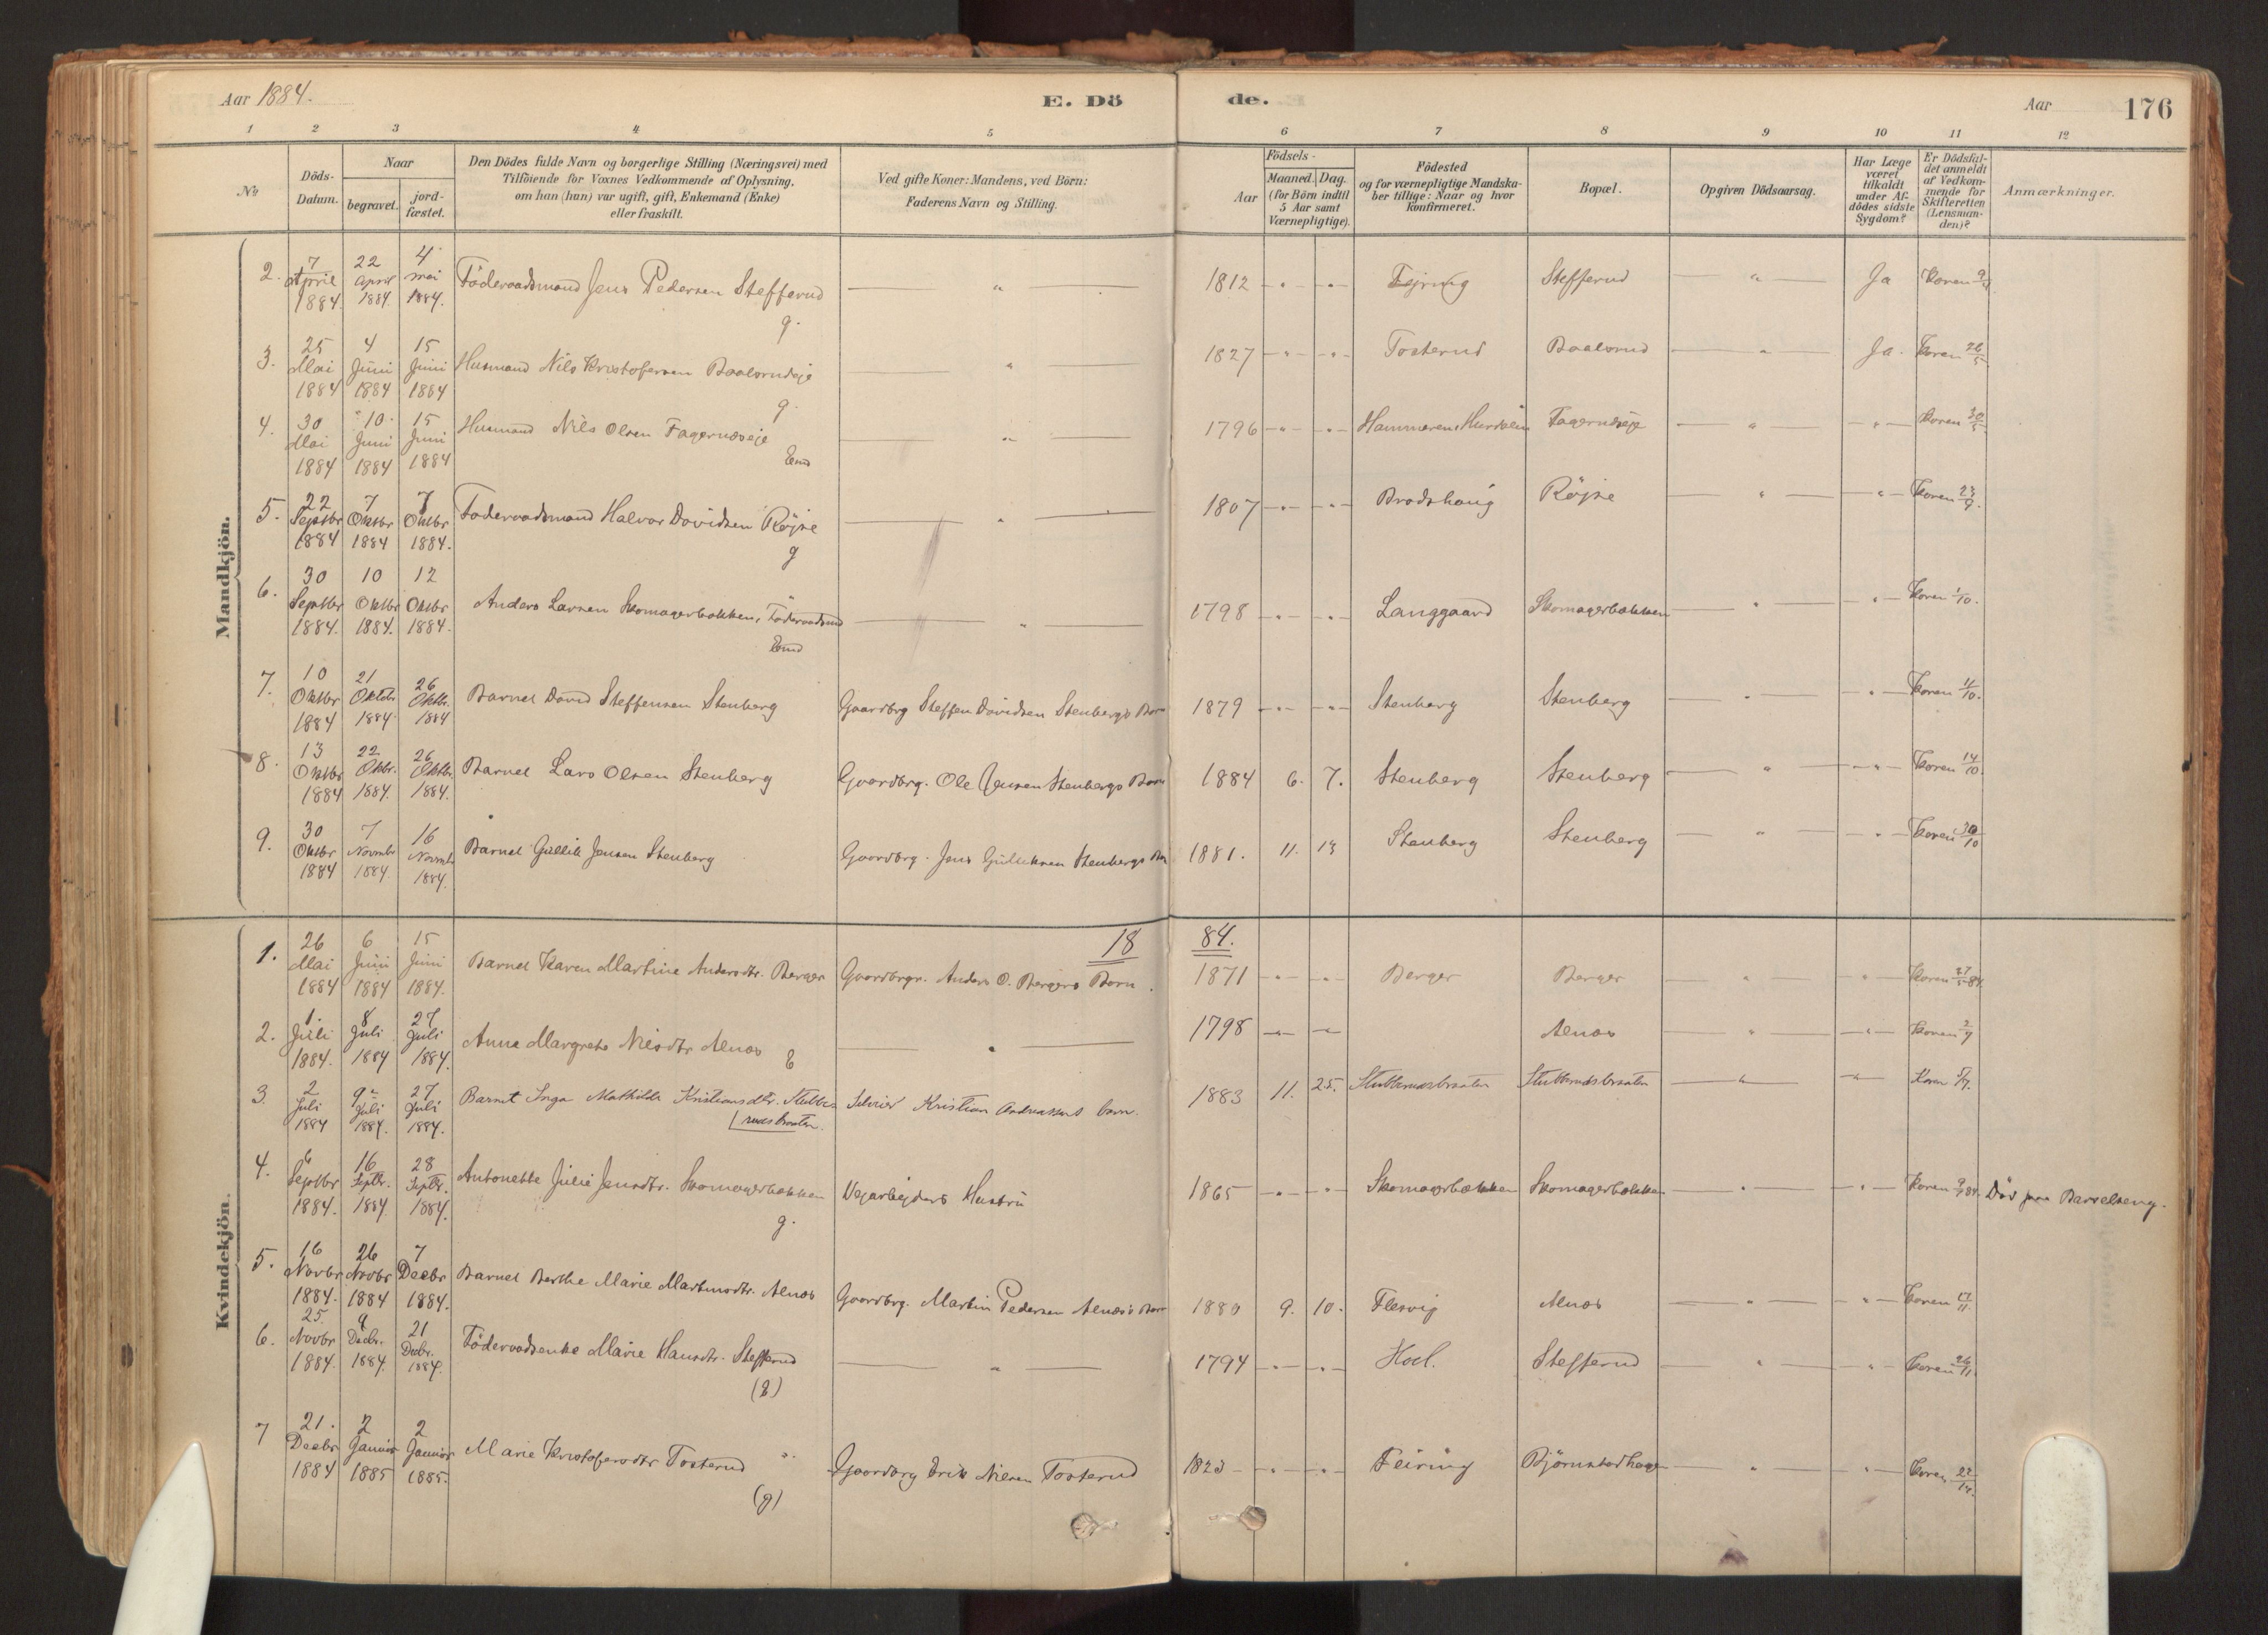 Aar 1884.
E. Dö
de.
Aar
176
1 2 3 4 5 6 7 8 9 10 11 12
No
Döds-Datum.
Naar
begravet.
jord-fæstet.
Den Dödes fulde Navn og borgerlige Stilling (Næringsvei) med
Tilföiende for Voxnes Vedkommende af Oplysning,
om han (hun) var ugift, gift, Enkemand (Enke)
eller fraskilt.
Ved gifte Koner: Mandens, ved Börn:
Faderens Navn og Stilling.
Födsels-
Aar
Maaned. Dag.
(for Börn indtil
5 Aar samt
Værnepligtige).
Födested
og for værnepligtige Mandska-
ber tillige: Naar og hvor
konfirmeret.
Bopæl.
Opgiven Dödsaarsag.
Har Læge
været
tilkaldt
under Af-
dödes sidste
Sygdom?
Er Dödsfal-
det anmeldt
af Vedkom-
mende for
Skifteretten
(Lensman-
den)?
Anmærkninger.
Mandkjön.
2. 7 April 1884. 22 April 1884. 4 Mai 1884. Föderaadsmand Jens Pedersen Stefferud g. — " — 1812 Fejring Stefferud — " — Ja Koren 9/4
3. 25 Mai 1884 4 Juni 1884 15 Juni 1884 Husmand Nils Kristofersen Baalsrudeje g. — " — 1827 Tosterud Baalsrud — " — Ja. Koren 26/5
4. 30 Mai 1884 10 Juni 1884 15 Juni 1884 Husmand Nils Olsen Fagernæseje Emd — " — 1796 Hammeren, Hurdalen — " — Koren 30/5
5. 22 Septbr 1884 7 Oktbr 1884 7 Oktbr 1884. Föderaadsmand Halvor Davidsen Röjse g — " — 1807 Brodshaug Röjse — " — Koren 23/9.
6. 30 Septbr 1884. 10 Oktbr 1884. 12 Oktbr 1884. Anders Larsen Skomagerbakken, Föderaadsmd Emd — " — 1798 Langgaard Skomagerbakken — " — Koren 1/10.
7. 10 Oktbr 1884 21 Oktobr 1884 26 Oktbr. 1884 Barnet David Steffensen Stenberg Gaardbrg Steffen Davidsen Stenbergs Barn 1879 Stenberg Stenberg — " — Koren 11/10.
8. 13 Oktbr 1884 22 Oktbr. 1884. 26 Oktbr. 1884. Barnet Lars Olsen Stenberg Gaardbrg. Ole Jensen Stenbergs Barn 1884 6. 7. Stenberg Stenberg — " — Koren 14/10.
9. 30 Oktbr 1884 7 Novmbr 1884 16 Novmb 1884. Barnet Gullik Jensen Stenberg Gaardbrg. Jens Gulliksen Stenbergs Bn 1881. 11. 13 Stenberg Stenberg — " — Koren 30/10
Kvindekjön.
18 84.
1. 26 Mai 1884 6 Juni 1884 15 Juni 1884. Barnet Karen Martine Andersdtr. Berger Gaardbrgr. Anders O. Bergers Barn. 1871 Berger Berger — " — Koren 27/5 84.
2. 1. Juli 1884. 8 Juli 1884 27 Juli 1884. Anne Margrete Nilsdtr Alnæs E — " — 1798 Alnæs — " — Koren 2/7
3. 2 Juli 1884 9 Juli 1884. 27 Juli 1884. Barnet Inga Mathilde Kristiansdtr. Stubbe-
rudsbraaten. Kristian Andreassens barn. 1883 11. 25. Stubberudsbraaten Stubberudsbraaten — " — Koren 5/7.
4. 6 Septbr 1884. 16 Septbr. 1884 28 Septbr. 1884. Antonette Julie Jensdtr. Skomagerbakken g. Vejarbejders Hustru 1865 Skomagerbakken Skomagerbakken — " — Koren 9/9 84. Död paa Barselseng.
5. 16 Novbr 1884. 26 Novbr 1884 7 Decbr 1884. Barnet Berthe Marie Martinsdtr. Alnæs Gaardbrg. Martin Pedersen Alnæs's Barn 1880 9. 10. Flesvig Alnæs — " — Koren 17/11.
6. 25. Novbr 1884. 9 Decbr. 1884. 21 Decbr. 1884. Föderaadsenke Marie Hansdtr. Stefferud (E) — " — 1794 Hoel. Stefferud — " — Koren 26/11.
7 21. Decbr 1884 2 Januar 1885 2 Januar 1885. Marie Kristofersdtr Tosterud (g) Gaardbrg Erik Nilsen Tosterud 1823 Feiring Björnstadhagen — " — Koren 22/12.